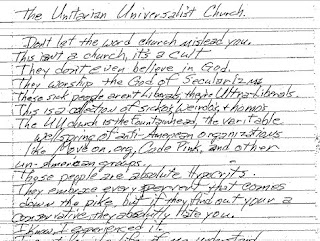 The Unitarian Universalist Church.
Don't let the word church mislead you.
This isn't a church, it's a cult.
They don't even believe in God.
They worship the God of Secularizm.
These sick people aren't Liberals, they're Ultra-Liberals.
This is a collection of sickos, weirdos, & homos.
The UU church is the Fountainhead, the veritable
wellspring of anti-American organizations
like Move on.org, Code Pink, and other
un-American groups.
Those people are absolute Hypocrits.
They embrace every pervert that comes
down the pike, but if they find out your a
conservative, they absolutly hate you.
I know, I experienced it.